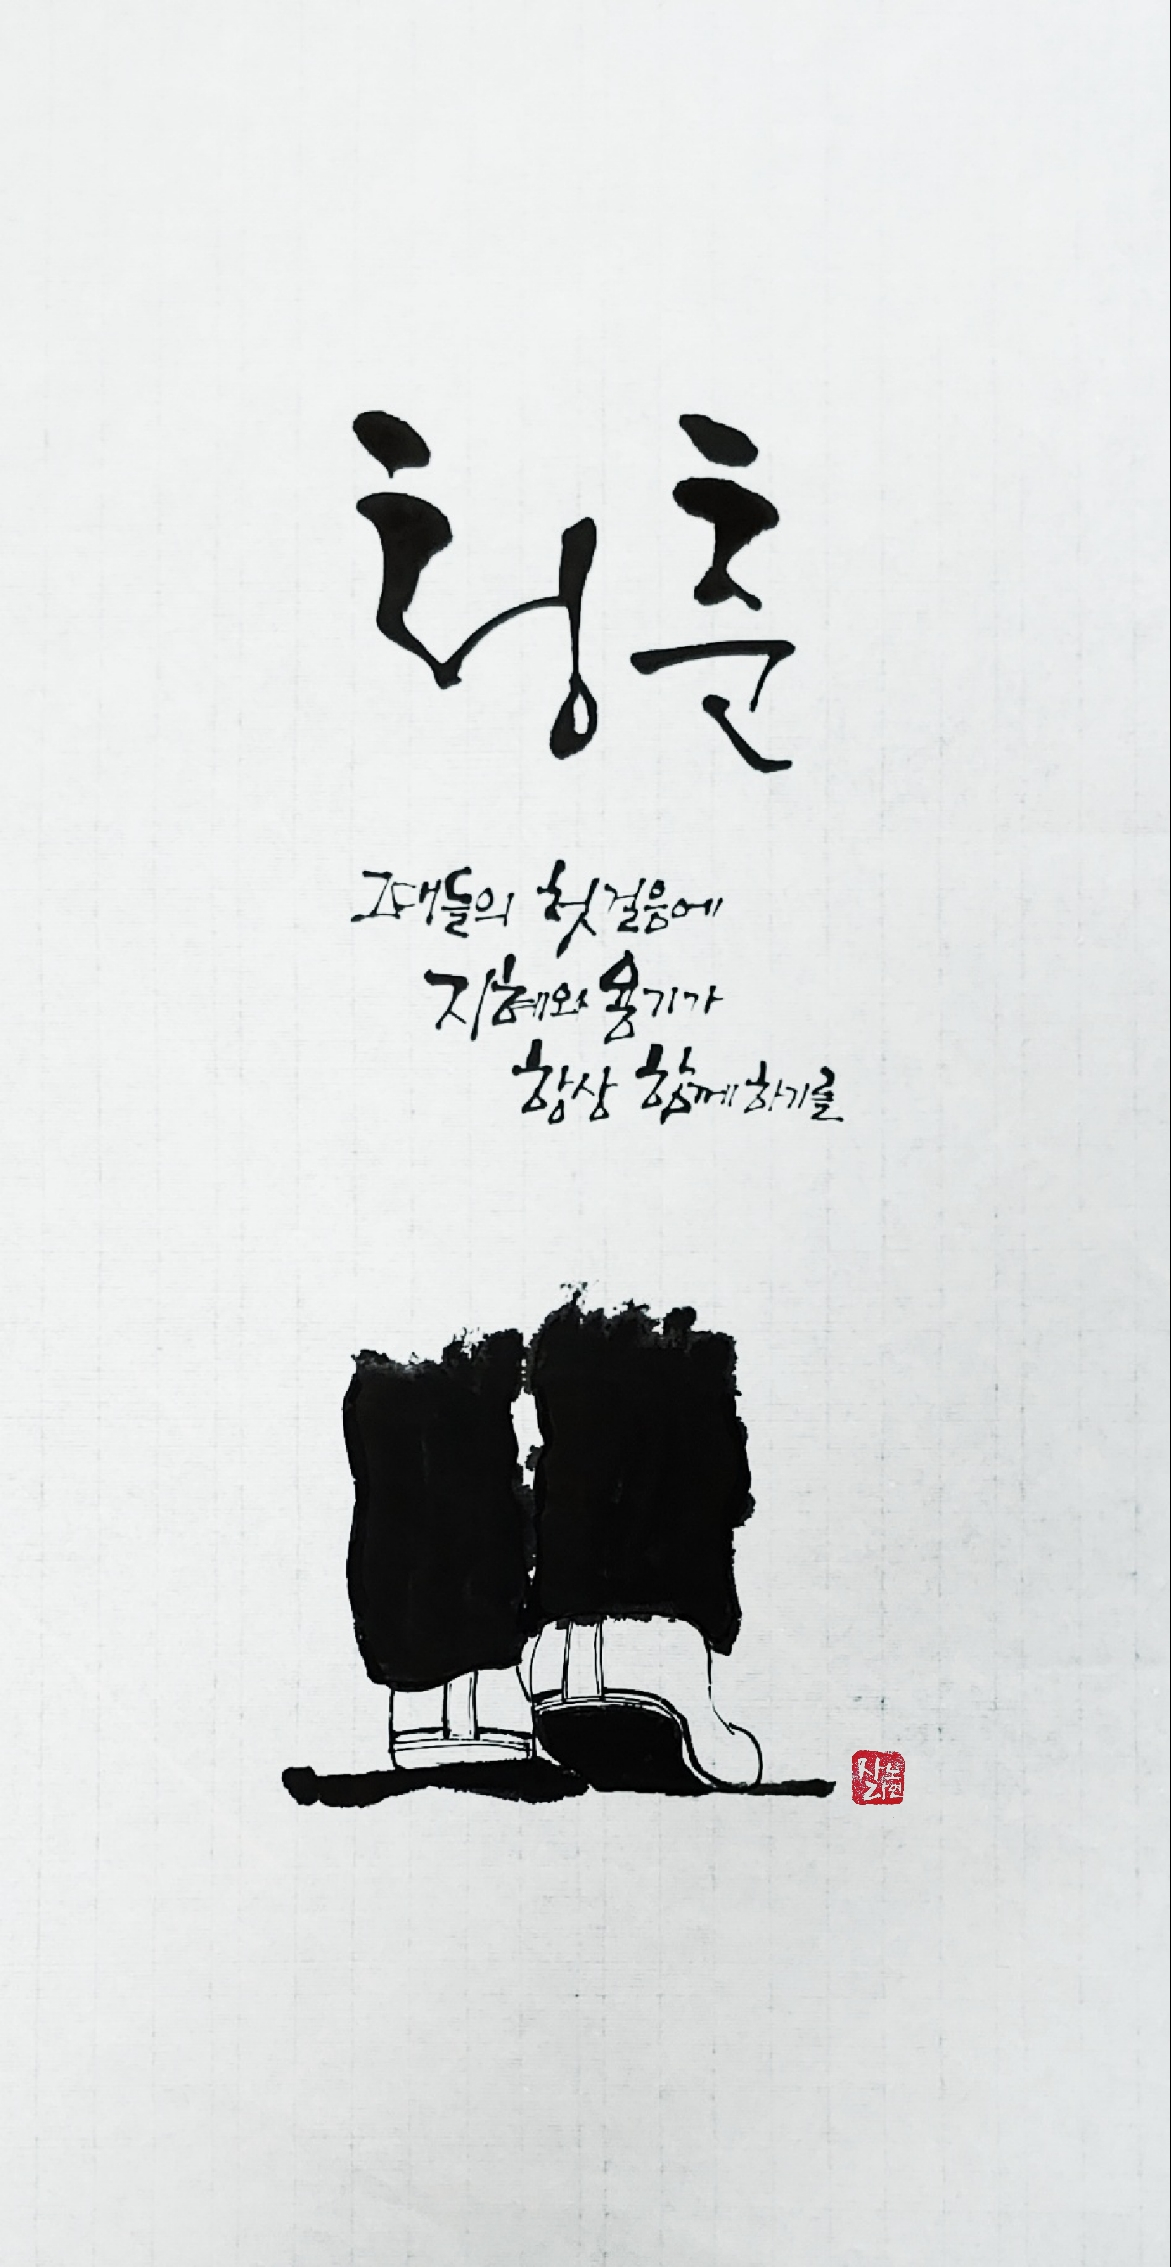 청춘
그대들의 첫걸음에
지혜와 용기가
항상 함께하기를